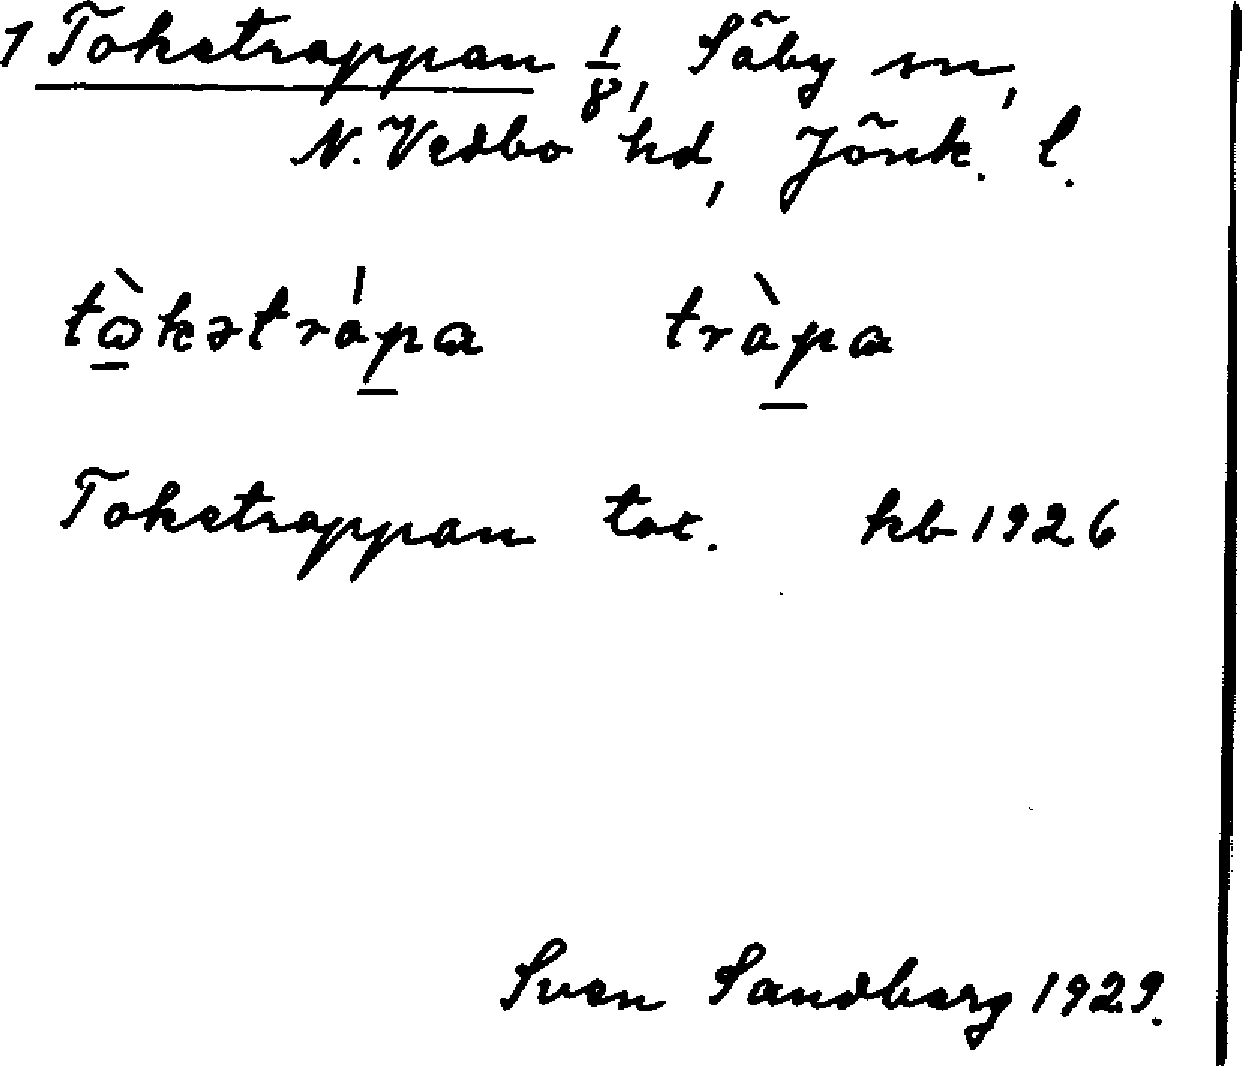 1 Toketrappan 1/8, Säby sn,
N. Vedbo hd, Jönk. l.
tɷ̀kətrápa tràpa
Toketrappan tot. kb 1926
Sven Sandberg 1929.